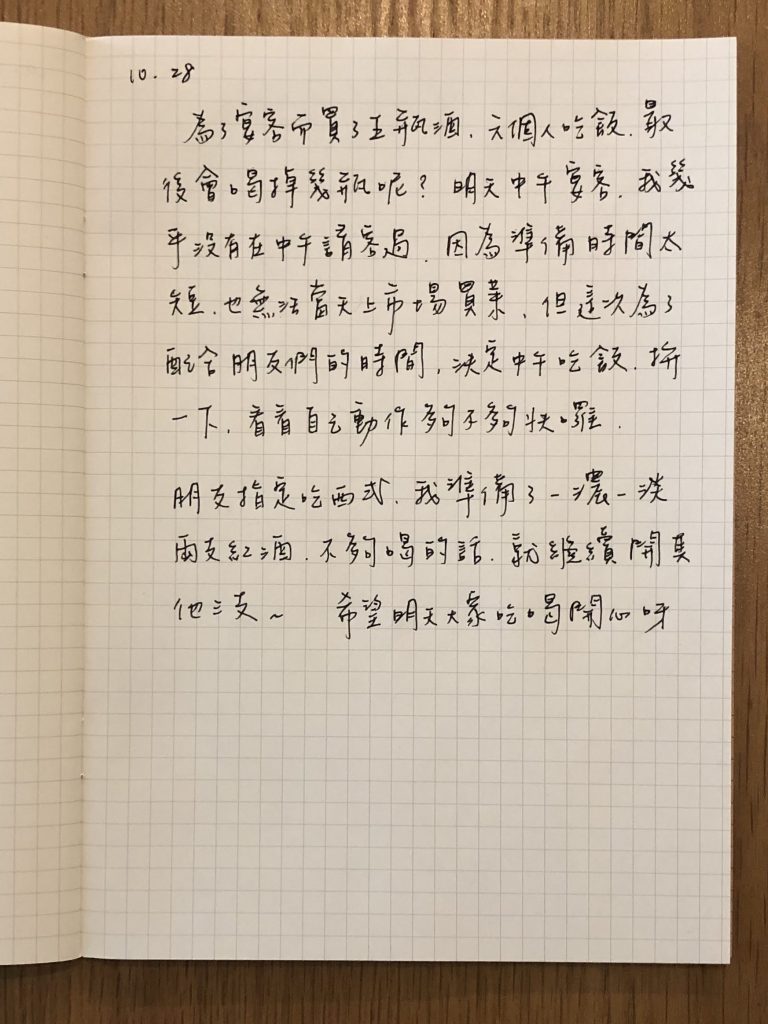 10.28
為了宴客而買了五瓶酒.六個人吃飯.最
後會喝掉幾瓶呢?明天中午宴客.我幾
乎沒有在中午請客過.因為準備時間太
短.也無法當天上市場買菜.但這次為了
配合朋友們的時間,決定中午吃飯.拚
一下.看看自己動作夠不夠快囉.
朋友指定吃西式.我準備了一濃一淡
兩支紅酒.不夠喝的話.就繼續開其
他三支~ 希望明天大家吃喝開心呀